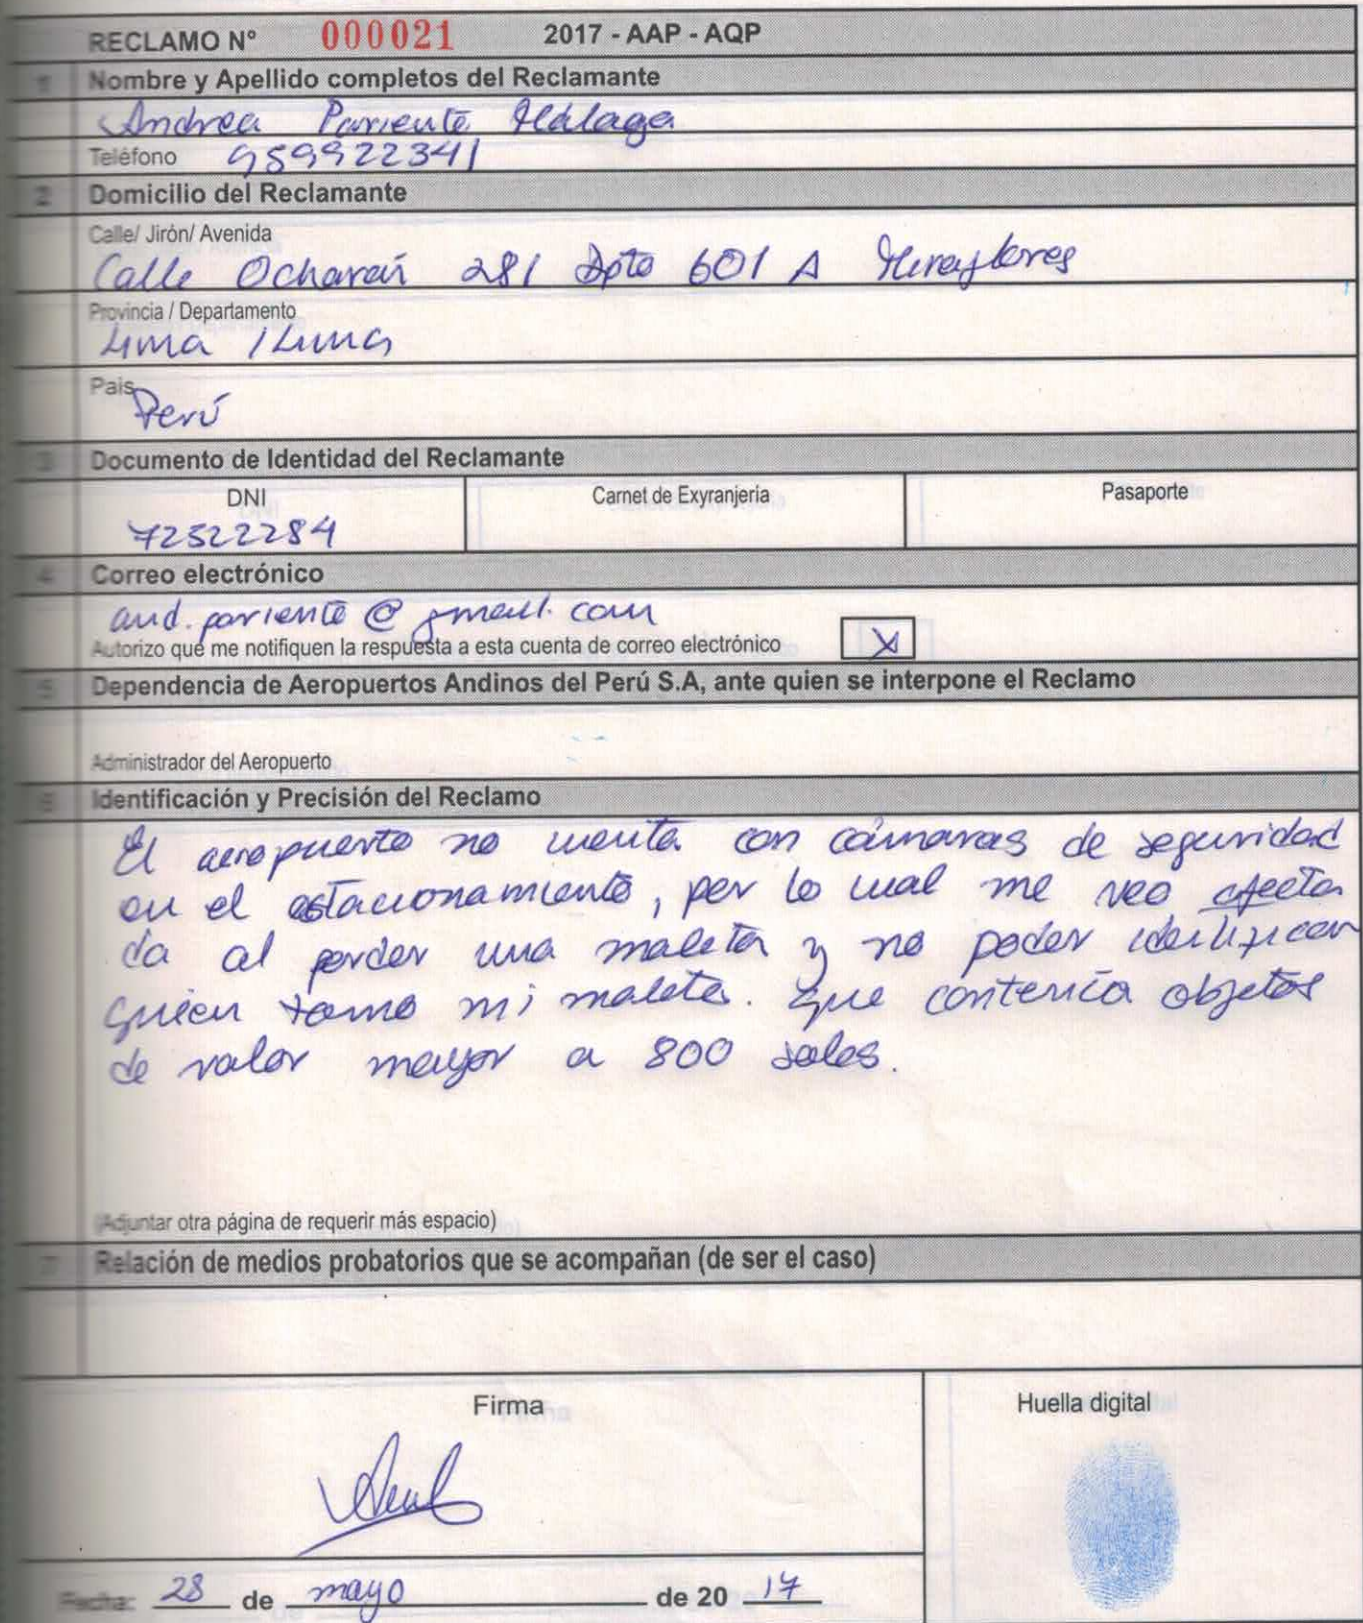 RECLAMO N° 000021 2017 - AAP - AQP
1 Nombre y Apellido completos del Reclamante
Andrea Pariente Málaga
Teléfono 959922341
2 Domicilio del Reclamante
Calle/ Jirón/ Avenida
Calle Ocharán 281 Dpto 601 A Miraflores
Provincia / Departamento
Lima / Lima
Pais
Perú
3 Documento de Identidad del Reclamante
DNI Carnet de Exyranjería Pasaporte
72522284
4 Correo electrónico
and.pariente@gmail.com
Autorizo que me notifiquen la respuesta a esta cuenta de correo electrónico X
5 Dependencia de Aeropuertos Andinos del Perú S.A, ante quien se interpone el Reclamo
Administrador del Aeropuerto
6 Identificación y Precisión del Reclamo
El aeropuerto no cuenta con cámaras de seguridad
en el estacionamiento, por lo cual me veo afecta
da al perder una maleta y no poder identificar
quien tomo mi maleta. Que contenía objetos
de valor mayor a 800 soles.
(Adjuntar otra página de requerir más espacio)
7 Relación de medios probatorios que se acompañan (de ser el caso)
Firma Huella digital
Fecha: 28 de mayo de 20 17